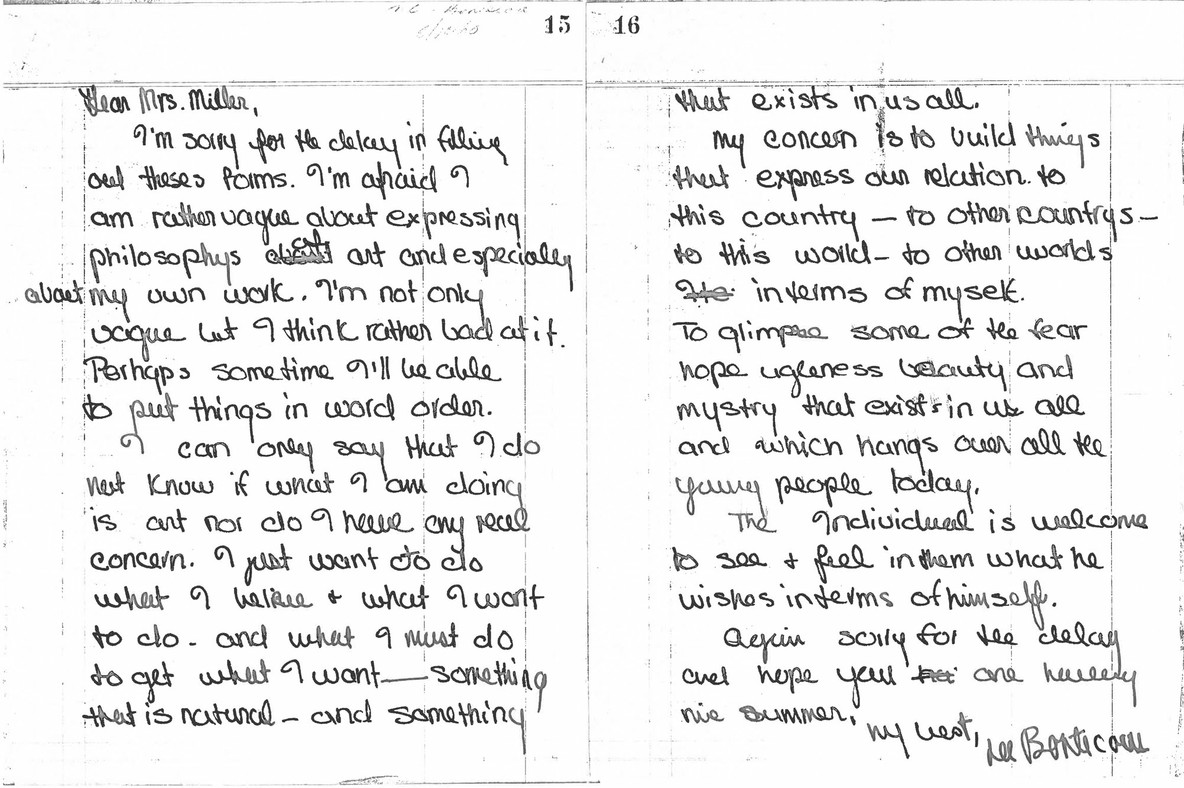 15
Dear Mrs. Miller,
I'm sorry for the delay in filling
out theses forms. I'm afraid I
am rather vague about expressing
philosophys art and especially
about my own work. I'm not only
vague but I think rather bad at it.
Perhaps sometime I'll be able
to put things in word order.
I can only say that I do
not know if what I am doing
is art nor do I have any real
concern. I just want to do
what I believe & what I want
to do - and what I must do
to get what I want — something
that is natural - and something
16
that exists in us all.
My concern is to build things
that express our relation to
this country — to other countrys —
to this world - to other worlds
in terms of myself.
To glimpse some of the fear
hope ugleness beauty and
mystry that exists in us all
and which hangs over all the
young people today.
The Individual is welcome
to see & feel in them what he
wishes in terms of himself.
Again sorry for the delay
and hope your are having
nice summer,
My best,
Lee Bontecou